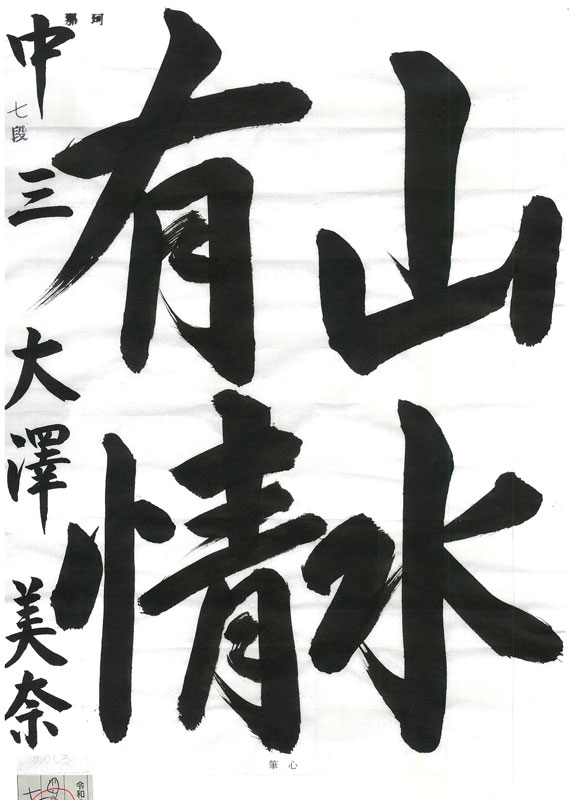 山水
有情
中三 大澤美奈
七段
心筆
のりしろ
令和